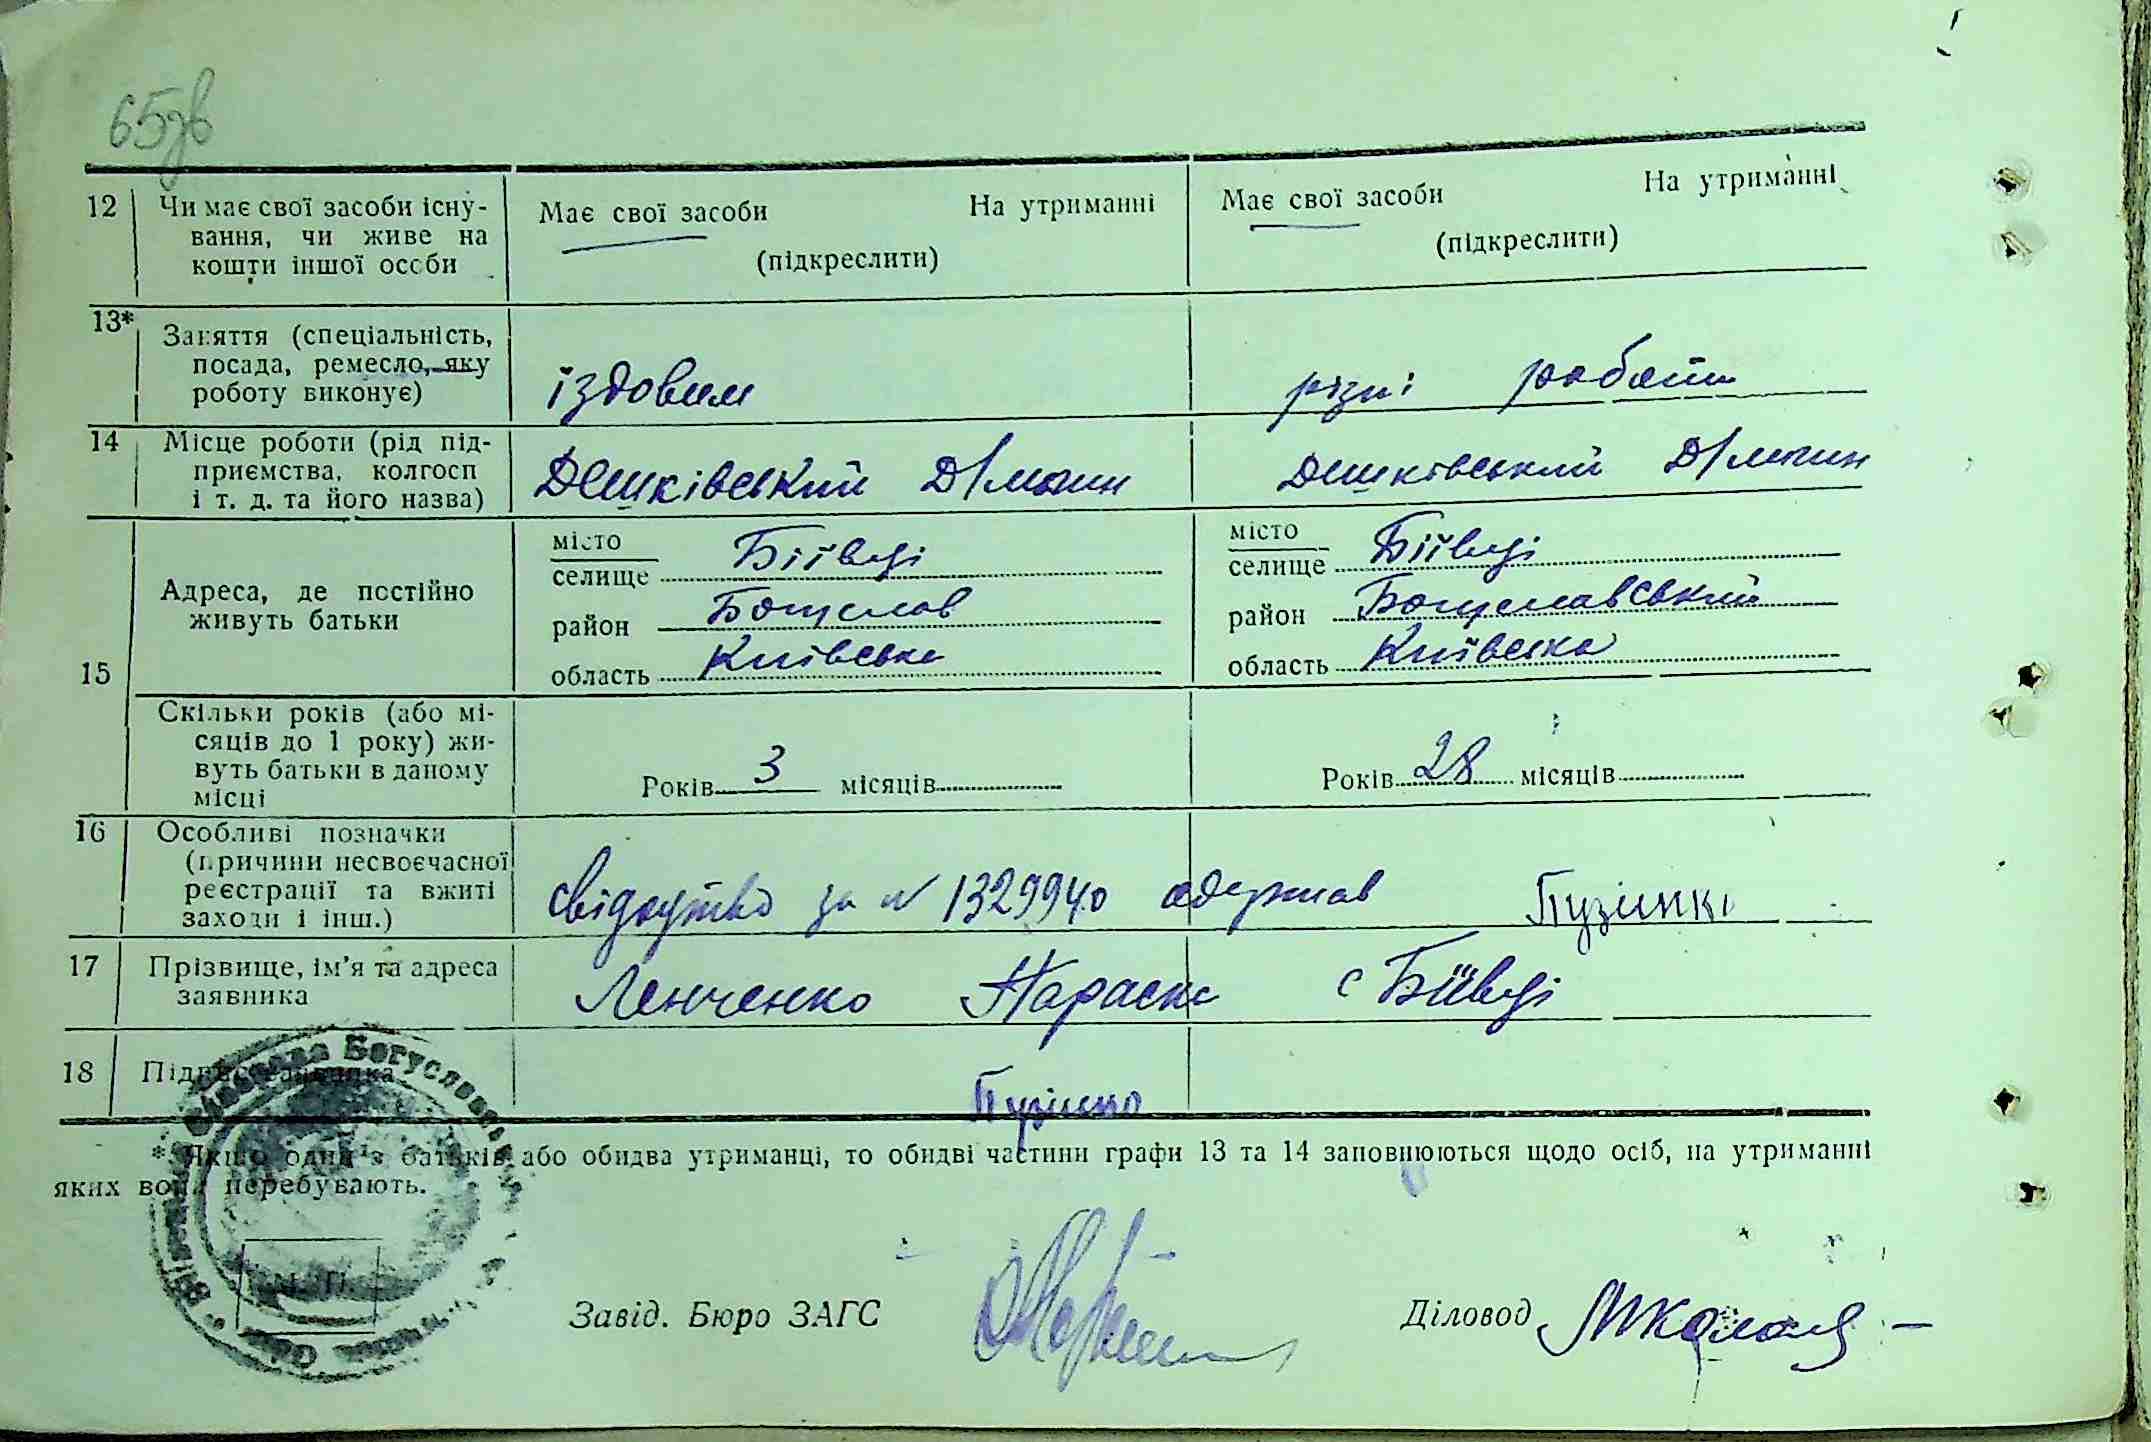 65зв
12 Чи має свої засоби існу-
вання, чи живе на
кошти іншої особи
Має свої засоби На утриманні
(підкреслити)
Має свої засоби На утриманні
(підкреслити)
13* Заняття (спеціальність,
посада, ремесло, яку
роботу виконує)
їздовим
різні роботи
14 Місце роботи (рід під-
приємства, колгосп
і т. д. та його назва)
Дешківський
Дешківський
15 Адреса, де постійно
живуть батьки
місто
селище Біївці
район Богуслав
область Київська
місто
селище Біївці
район Богуславський
область Київська
Скільки років (або мі-
сяців до 1 року) жи-
вуть батьки в даному
місці
Років 3 місяців
Років 28 місяців
16 Особливі позначки
(причини несвоєчасної
реєстрації та вжиті
заходи і інш.)
свідоцтво за № 1329940 одержав
17 Прізвище, ім'я та адреса
заявника
Ленченко Параска с Біївці
18 Підпис заявника
* Якщо один з батьків або обидва утриманці, то обидві частини графи 13 та 14 заповнюються щодо осіб, на утриманні
яких вони перебувають.
М. П.
Завід. Бюро ЗАГС
Діловод